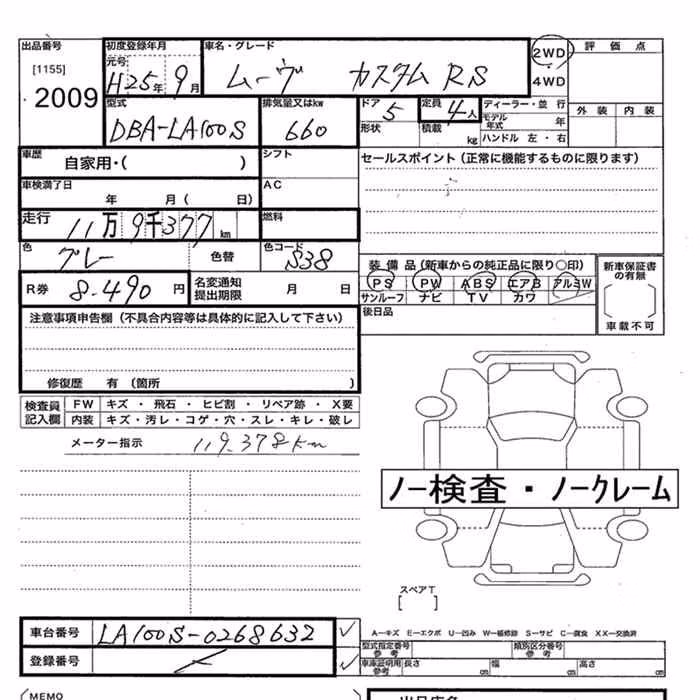 出品番号 初度登録年月 車名・グレード 2WD 評価点
[1155] 元号 H25年 9月 ムーヴ カスタム RS 4WD
2009 型式 排気量又はkw ドア 5 定員 4人 ディーラー・並 行 外装 内装
DBA-LA100S 660 形状 積載 kg モデル年式 年
ハンドル 左・右
車歴 自家用・( ) シフト セールスポイント(正常に機能するものに限ります)
車検満了日 年 月( 日) AC
走行 11万9千377km 燃料
色 グレー 色替 色コード S38 装備品(新車からの純正品に限り○印) 新車保証書の有無
R券 8-490円 名変通知提出期限 月 日 PS PW ABS エアB アルミW
サンルーフ ナビ TV カワ
注意事項申告欄(不具合内容等は具体的に記入して下さい) 後日品 車載不可
修復歴 有(箇所 )
検査員記入欄 FW キズ・飛石・ヒビ割・リペア跡・X要
内装 キズ・汚レ・コゲ・穴・スレ・キレ・破レ
メーター指示 119.378km
ノー検査・ノークレーム
スペアT
[ ]
車台番号 LA100S-0268632 A-キズ E-エクボ U-凹み W-補修跡 S-サビ C-腐食 XX-交換済
型式指定番号 参考 類別区分番号 参考
登録番号 車庫証明用 参考 長さ cm 幅 cm 高さ cm
MEMO 出品店名